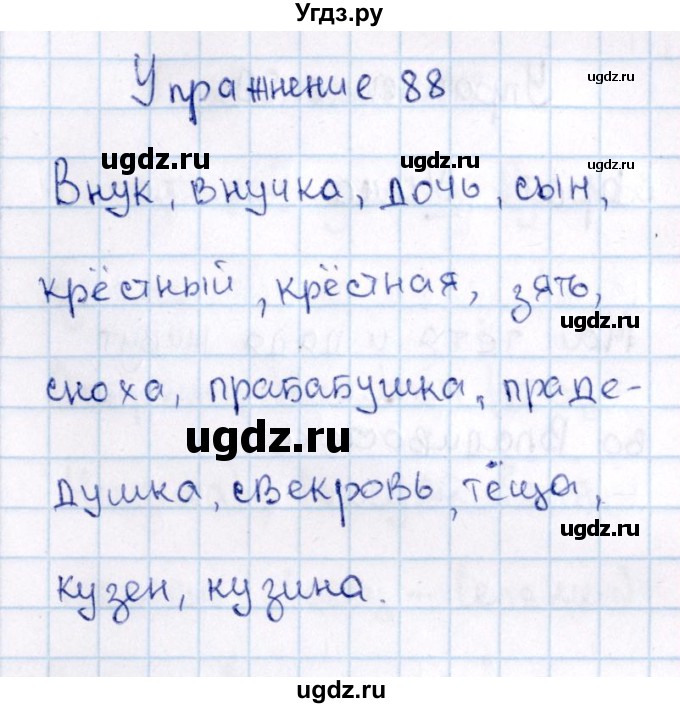 Угдз.ру
Упражнение 88
ugdz.ru
ugdz.ru ugdz.ru ugdz.ru
Внук, внучка, дочь, сын,
крёстный, крёстная, зять,
ugdz.ru
сноха, прабабушка, праде-
ugdz.ru
душка, свекровь, тёща,
ugdz.ru
кузен, кузина.
ugdz.ru